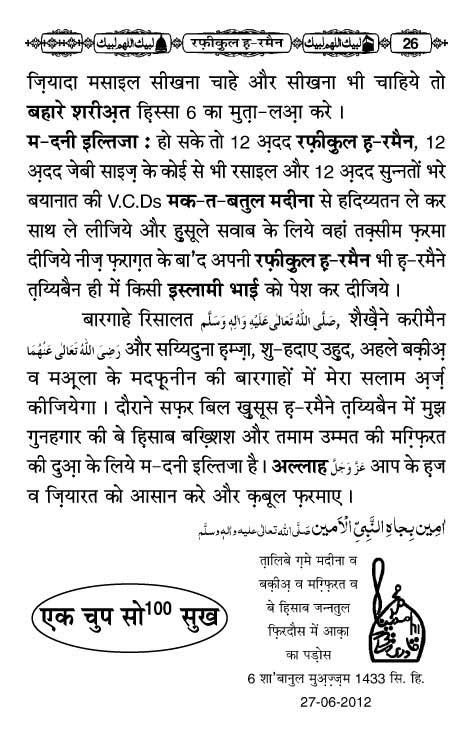 لبيك اللهم لبيك रफ़ीकुल ह-रमैन لبيك اللهم لبيك 26
ज़ियादा मसाइल सीखना चाहे और सीखना भी चाहिये तो
बहारे शरीअ़त हिस्सा 6 का मुता़-लआ़ करे ।
म-दनी इल्तिजा : हो सके तो 12 अ़दद रफ़ीकुल ह़-रमैन, 12
अ़दद जेबी साइज़ के कोई से भी रसाइल और 12 अ़दद सुन्नतों भरे
बयानात की V.C.Ds मक-त-बतुल मदीना से हदिय्यतन ले कर
साथ ले लीजिये और हुसूले सवाब के लिये वहां तक़्सीम फ़रमा
दीजिये नीज़ फ़राग़त के बा'द अपनी रफ़ीकुल ह़-रमैन भी ह़-रमैने
त़य्यिबैन ही में किसी इस्लामी भाई को पेश कर दीजिये ।
बारगाहे रिसालत صَلَّى اللهُ تَعَالٰى عَلَيْهِ وَاٰلِهٖ وَسَلَّم, शैख़ैने करीमैन
رَضِىَ اللهُ تَعَالٰى عَنْهُمَا और सय्यिदुना ह़म्ज़ा, शु-हदाए उहुद, अहले बक़ीअ़
व मअ़्ला के मदफ़ूनीन की बारगाहों में मेरा सलाम अ़र्ज़
कीजियेगा । दौराने सफ़र बिल ख़ुसूस ह़-रमैने त़य्यिबैन में मुझ
गुनहगार की बे हिसाब बख़्शिश और तमाम उम्मत की मग़्फ़िरत
की दुआ़ के लिये म-दनी इल्तिजा है । अल्लाह عَزَّوَجَلَّ आप के ह़ज
व ज़ियारत को आसान करे और क़बूल फ़रमाए ।
اٰمِين بِجَاهِ النَّبِىِّ الْاَمين صلَّى الله تعالٰى عليه واٰلهٖ وسلَّم
एक चुप सो100 सुख
त़ालिबे ग़मे मदीना व
बक़ीअ़ व मग़्फ़िरत व
बे हिसाब जन्नतुल
फ़िरदौस में आक़ा
का पड़ोस
6 शा'बानुल मुअ़ज़्ज़म 1433 सि. हि.
27-06-2012